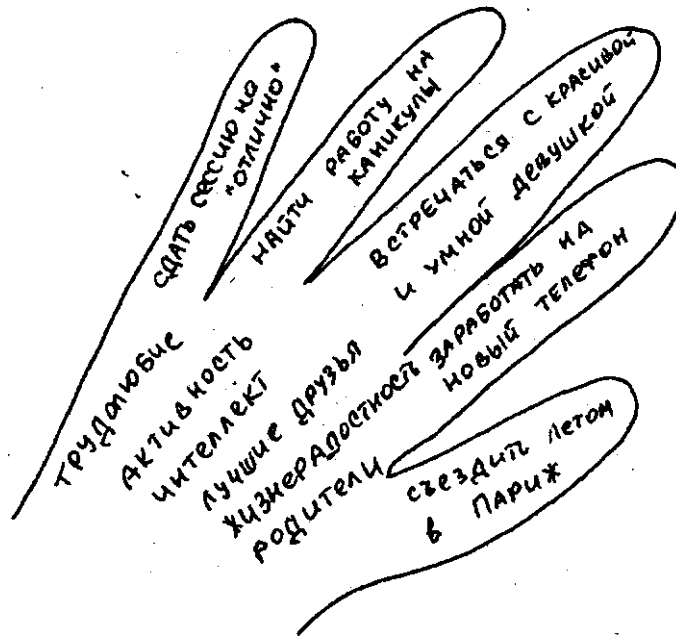 СДАТЬ СЕССИЮ НА
"ОТЛИЧНО"
НАЙТИ РАБОТУ НА
КАНИКУЛЫ
ВСТРЕЧАТЬСЯ С КРАСИВОЙ
И УМНОЙ ДЕВУШКОЙ
ЗАРАБОТАТЬ НА
НОВЫЙ ТЕЛЕФОН
СЪЕЗДИТЬ ЛЕТОМ
В ПАРИЖ
ТРУДОЛЮБИЕ
АКТИВНОСТЬ
ИНТЕЛЛЕКТ
ЛУЧШИЕ ДРУЗЬЯ
ЖИЗНЕРАДОСТНОСТЬ
РОДИТЕЛИ